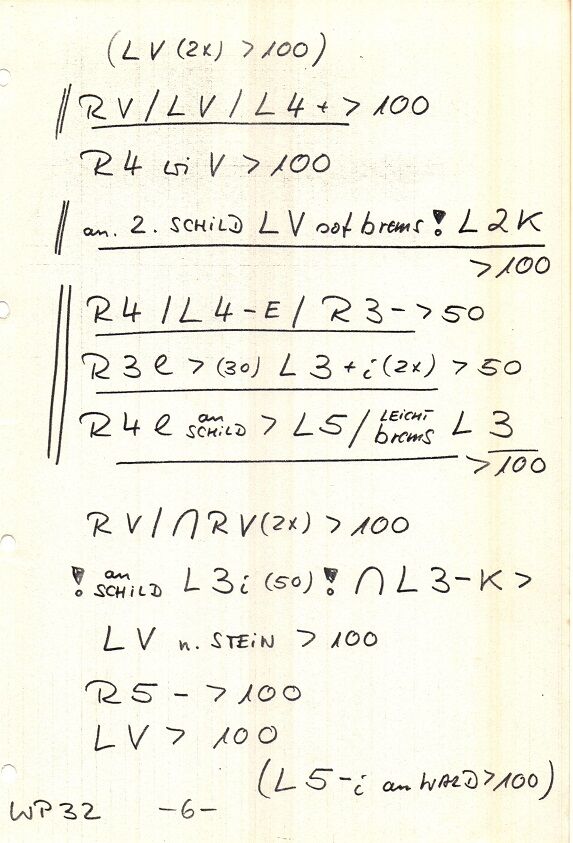 (LV (2x) > 100)
RV / LV / L4 + > 100
R4 wi V > 100
an. 2. SCHILD LV sof brems! L2K
> 100
R4 / L4 - E / R3 - > 50
R3 e > (30) L3 + i (2x) > 50
R4 e an SCHILD > L5 / LEICHT brems L3
> 100
RV / ∩ RV (2x) > 100
! an SCHILD L3 i (50) ! ∩ L3 - K >
LV n. STEIN > 100
R5 - > 100
LV > 100
(L5 - i an WALD > 100)
WP32 -6-